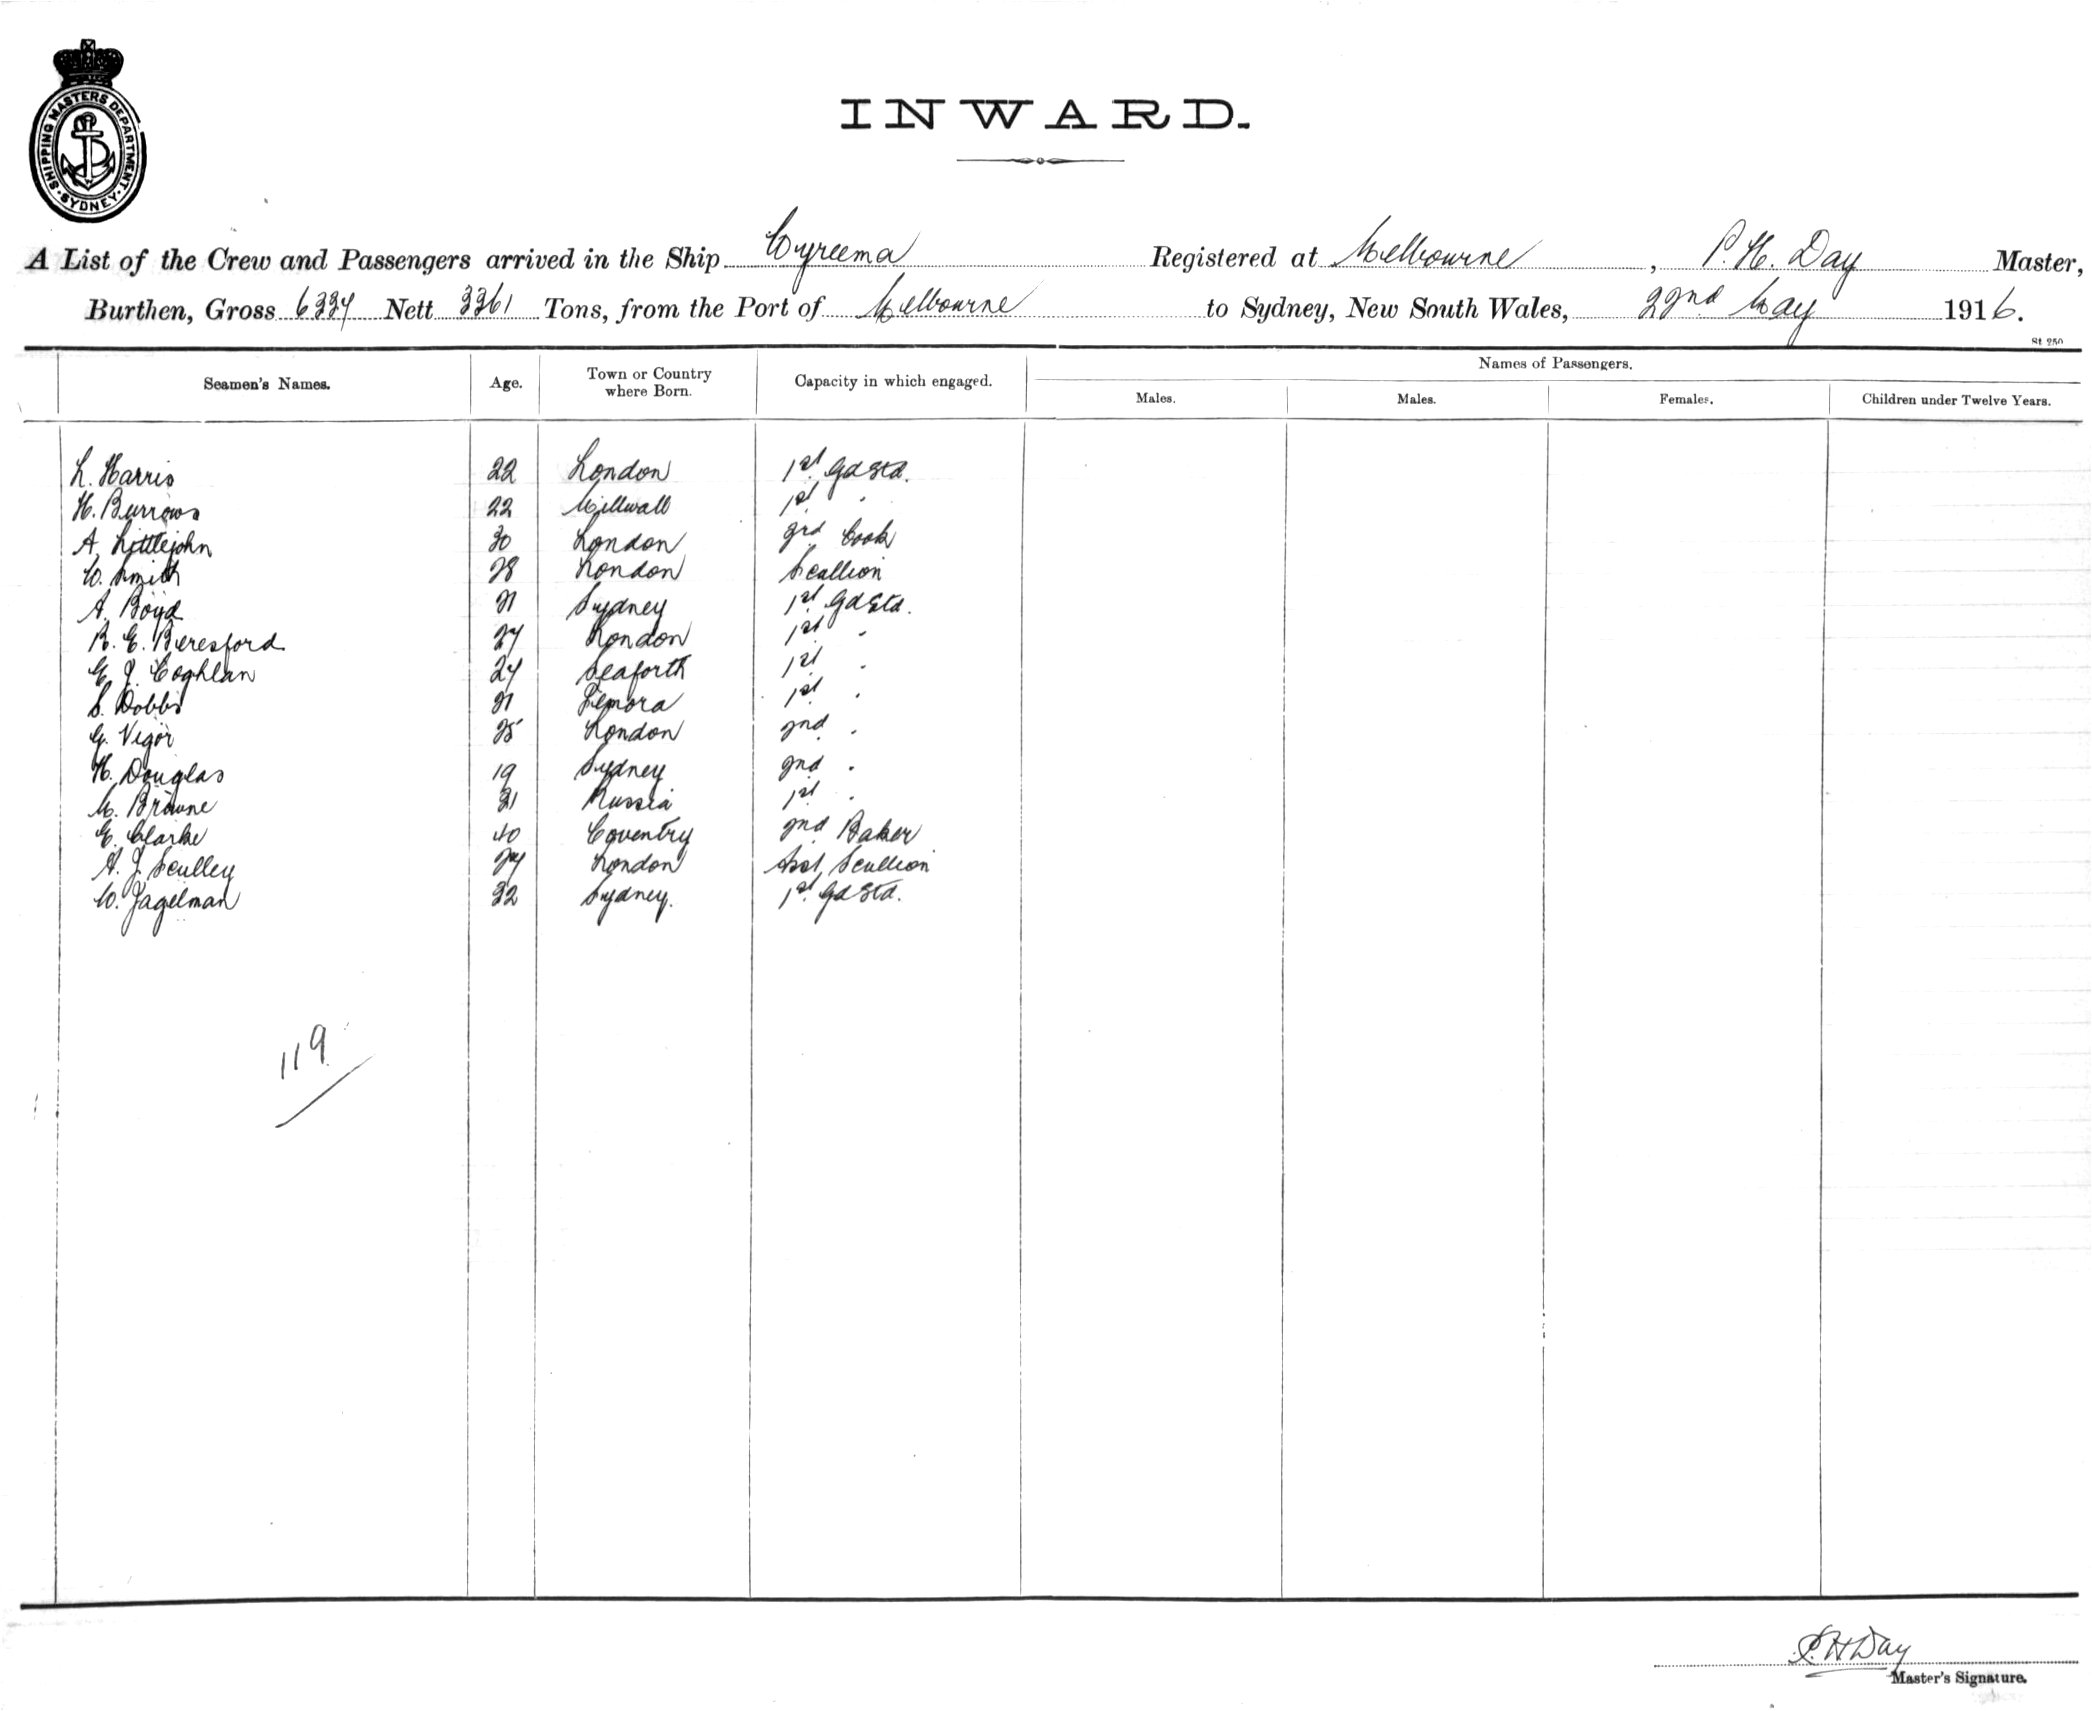 SHIPPING MASTERS DEPARTMENT. SYDNEY
INWARD.
A List of the Crew and Passengers arrived in the Ship Wyreema Registered at Melbourne, P. H. Day Master,
Burthen, Gross 6334 Nett 3361 Tons, from the Port of Melbourne to Sydney, New South Wales, 22nd May 1916.
St 250
Seamen's Names. Age. Town or Country where Born. Capacity in which engaged. Names of Passengers.
Males. Males. Females. Children under Twelve Years.
L. Harris 22 London 1st Gd Std.
H. Burrows 22 Millwall 1st "
A. Littlejohn 30 London 3rd Cook
W. Smith 28 London Scullion
A. Boyd 21 Sydney 1st Gd Std.
R. E. Beresford 27 London 1st "
E. J. Coghlan 24 Seaforth 1st "
S. Dobbs 21 Temora 1st "
G. Vigor 25 London 2nd "
H. Douglas 19 Sydney 2nd "
M. Browne 21 Russia 1st "
E. Clarke 40 Coventry 2nd Baker
A. J. Sculley 24 London Asst. Scullion
W. Jagelman 32 Sydney. 1st Gd Std.
119
P. H Day
Master's Signature.